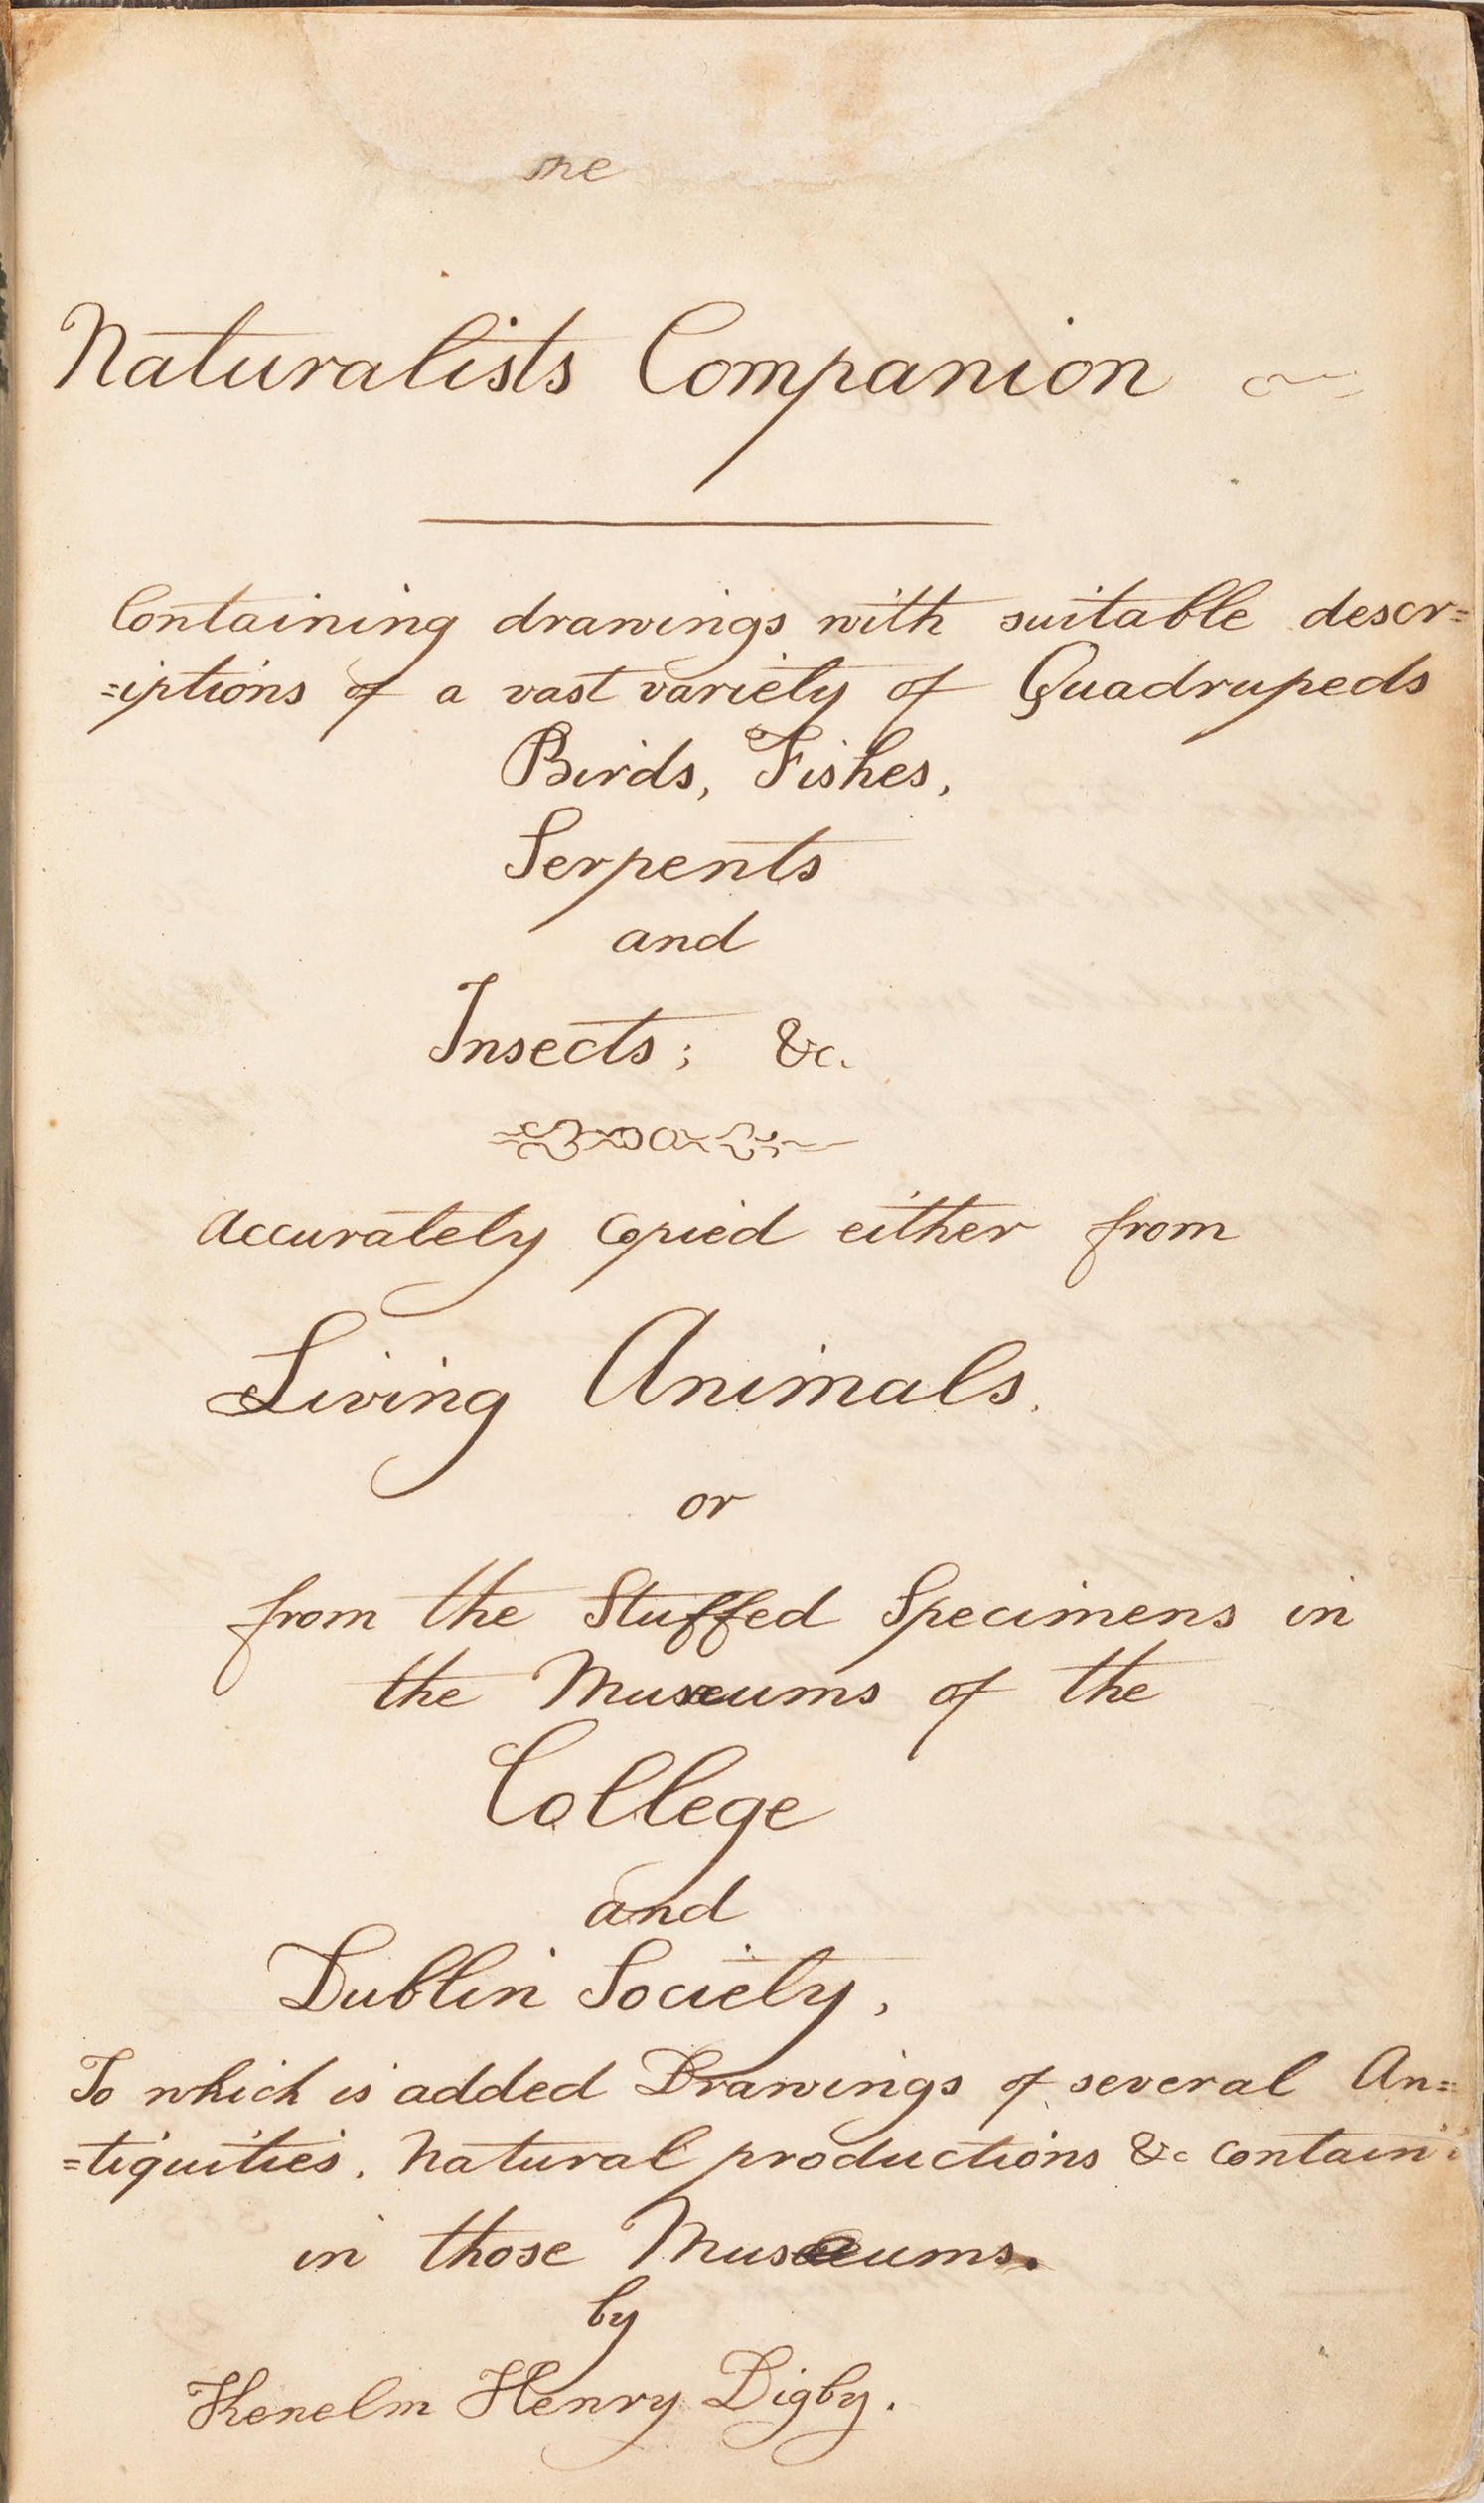 he
Naturalists Companion
Containing drawings with suitable descr=
=iptions of a vast variety of Quadrupeds
Birds, Fishes,
Serpents
and
Insects; &c.
Accurately copied either from
Living Animals.
or
from the Stuffed Specimens in
the Museums of the
College
and
Dublin Society,
To which is added Drawings of several An=
=tiquities, Natural productions &c contain
in those Musaeums.
by
Kenelm Henry Digby.